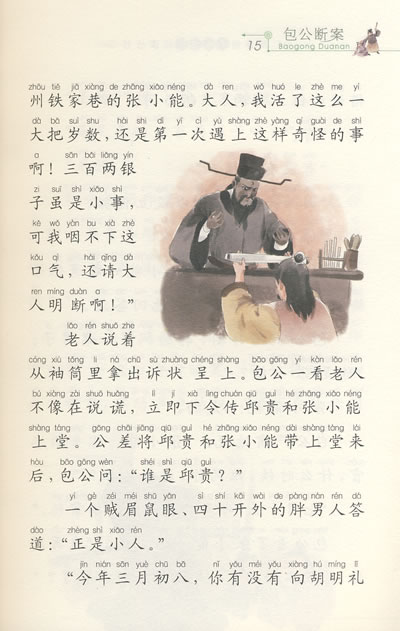 包公断案
15 Baogong Duanan
zhōu tiě jiā xiàng de zhāng xiǎo néng dà rén wǒ huó le zhè me yí
州铁家巷的张小能。大人，我活了这么一
dà bǎ suì shù hái shi dì yī cì yù shàng zhè yàng qí guài de shì
大把岁数，还是第一次遇上这样奇怪的事
a sān bǎi liǎng yín
啊！三百两银
zi suī shì xiǎo shì
子虽是小事，
kě wǒ yàn bu xià zhè
可我咽不下这
kǒu qì hái qǐng dà
口气，还请大
rén míng duàn a
人明断啊！”
lǎo rén shuō zhe
老人说着
cóng xiù tǒng li ná chū sù zhuàng chéng shàng bāo gōng yí kàn lǎo rén
从袖筒里拿出诉状呈上。包公一看老人
bú xiàng zài shuō huǎng lì jí xià lìng chuán qiū guì hé zhāng xiǎo néng
不像在说谎，立即下令传邱贵和张小能
shàng táng gōng chāi jiāng qiū guì hé zhāng xiǎo néng dài shàng táng lái
上堂。公差将邱贵和张小能带上堂来
hòu bāo gōng wèn shéi shì qiū guì
后，包公问：“谁是邱贵？”
yí gè zéi méi shǔ yǎn sì shí kāi wài de pàng nán rén dá
一个贼眉鼠眼、四十开外的胖男人答
dào zhèng shì xiǎo rén
道：“正是小人。”
jīn nián sān yuè chū bā nǐ yǒu méi yǒu xiàng hú míng lǐ
“今年三月初八，你有没有向胡明礼